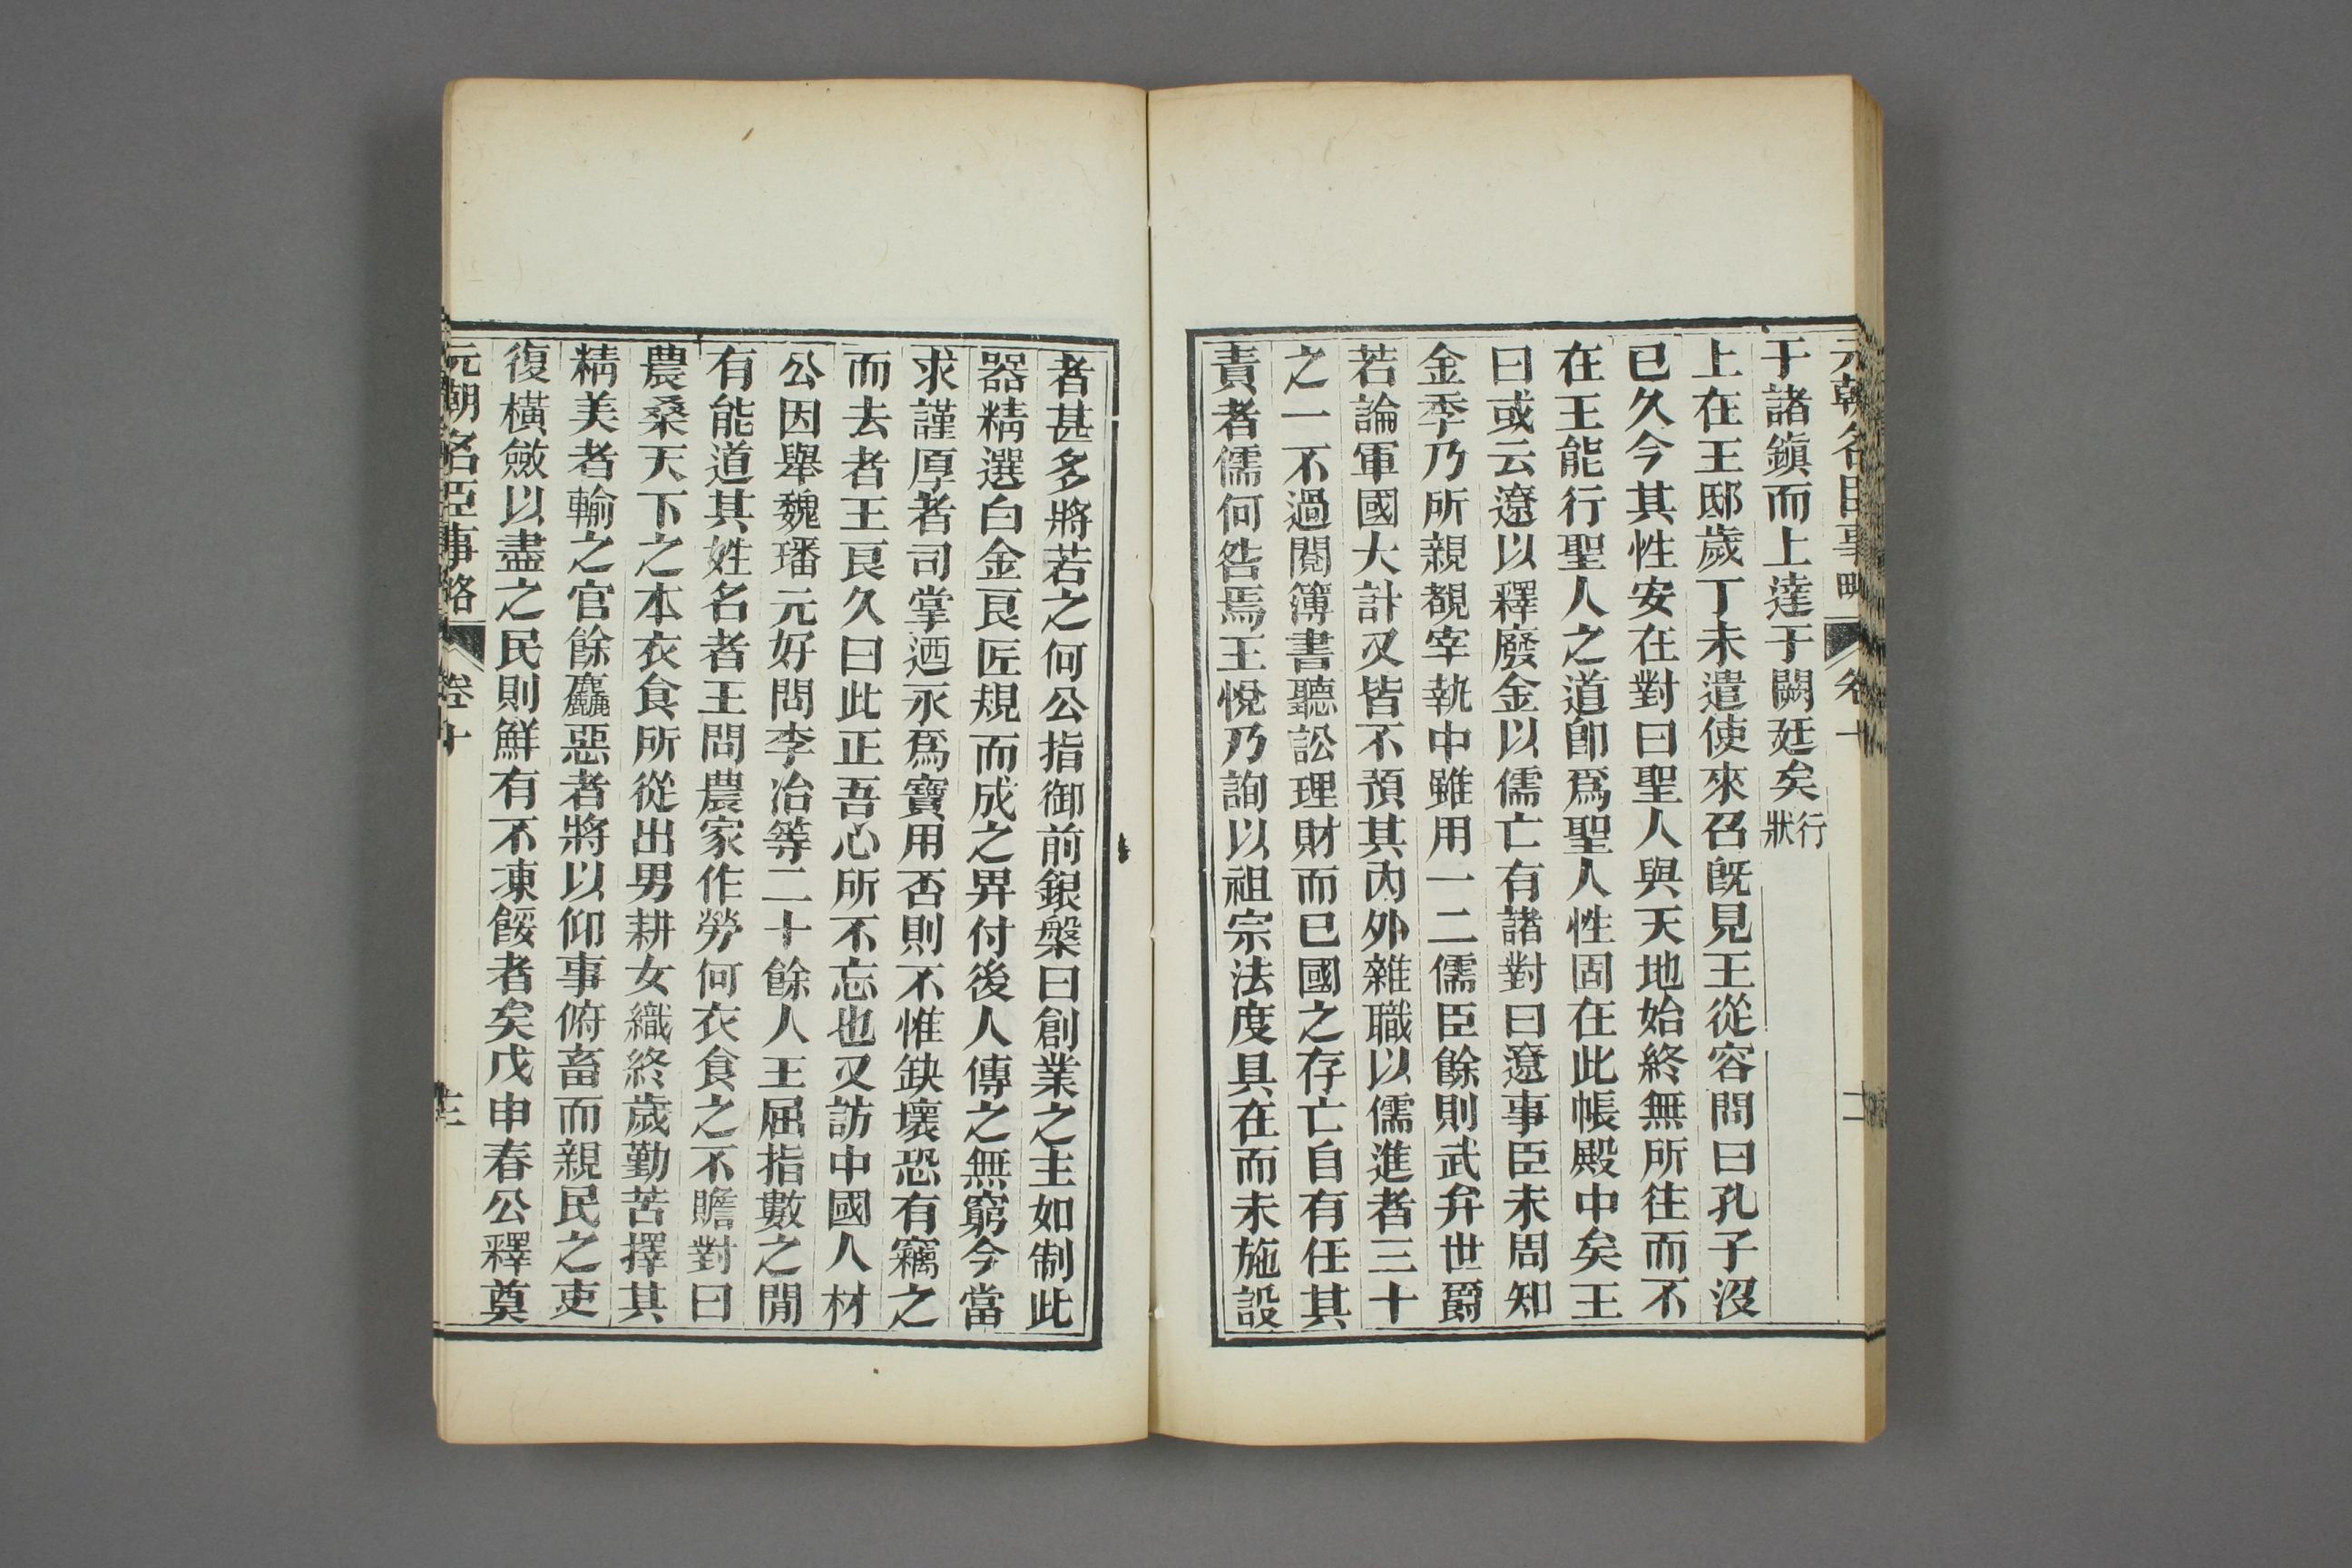 元朝名臣事略 卷十 二
于諸鎮而上達于闕廷矣行狀
上在王邸歲丁未遣使來召旣見王從容問曰孔子沒
已久今其性安在對曰聖人與天地始終無所往而不
在王能行聖人之道卽爲聖人性固在此帳殿中矣王
曰或云遼以釋廢金以儒亡有諸對曰遼事臣未周知
金季乃所親覩宰執中雖用一二儒臣餘則武弁世爵
若論軍國大計又皆不預其內外雜職以儒進者三十
之一不過閱簿書聽訟理財而已國之存亡自有任其
責者儒何咎焉王悅乃詢以祖宗法度具在而未施設
者甚多將若之何公指御前銀槃曰創業之主如制此
器精選白金良匠規而成之畀付後人傳之無窮今當
求謹厚者司掌迺永爲寶用否則不惟缺壞恐有竊之
而去者王良久曰此正吾心所不忘也又訪中國人材
公因舉魏璠元好問李冶等二十餘人王屈指數之閒
有能道其姓名者王問農家作勞何衣食之不贍對曰
農桑天下之本衣食所從出男耕女織終歲勤苦擇其
精美者輸之官餘麤惡者將以仰事俯畜而親民之吏
復橫斂以盡之民則鮮有不凍餒者矣戊申春公釋奠
元朝名臣事略 卷十 三